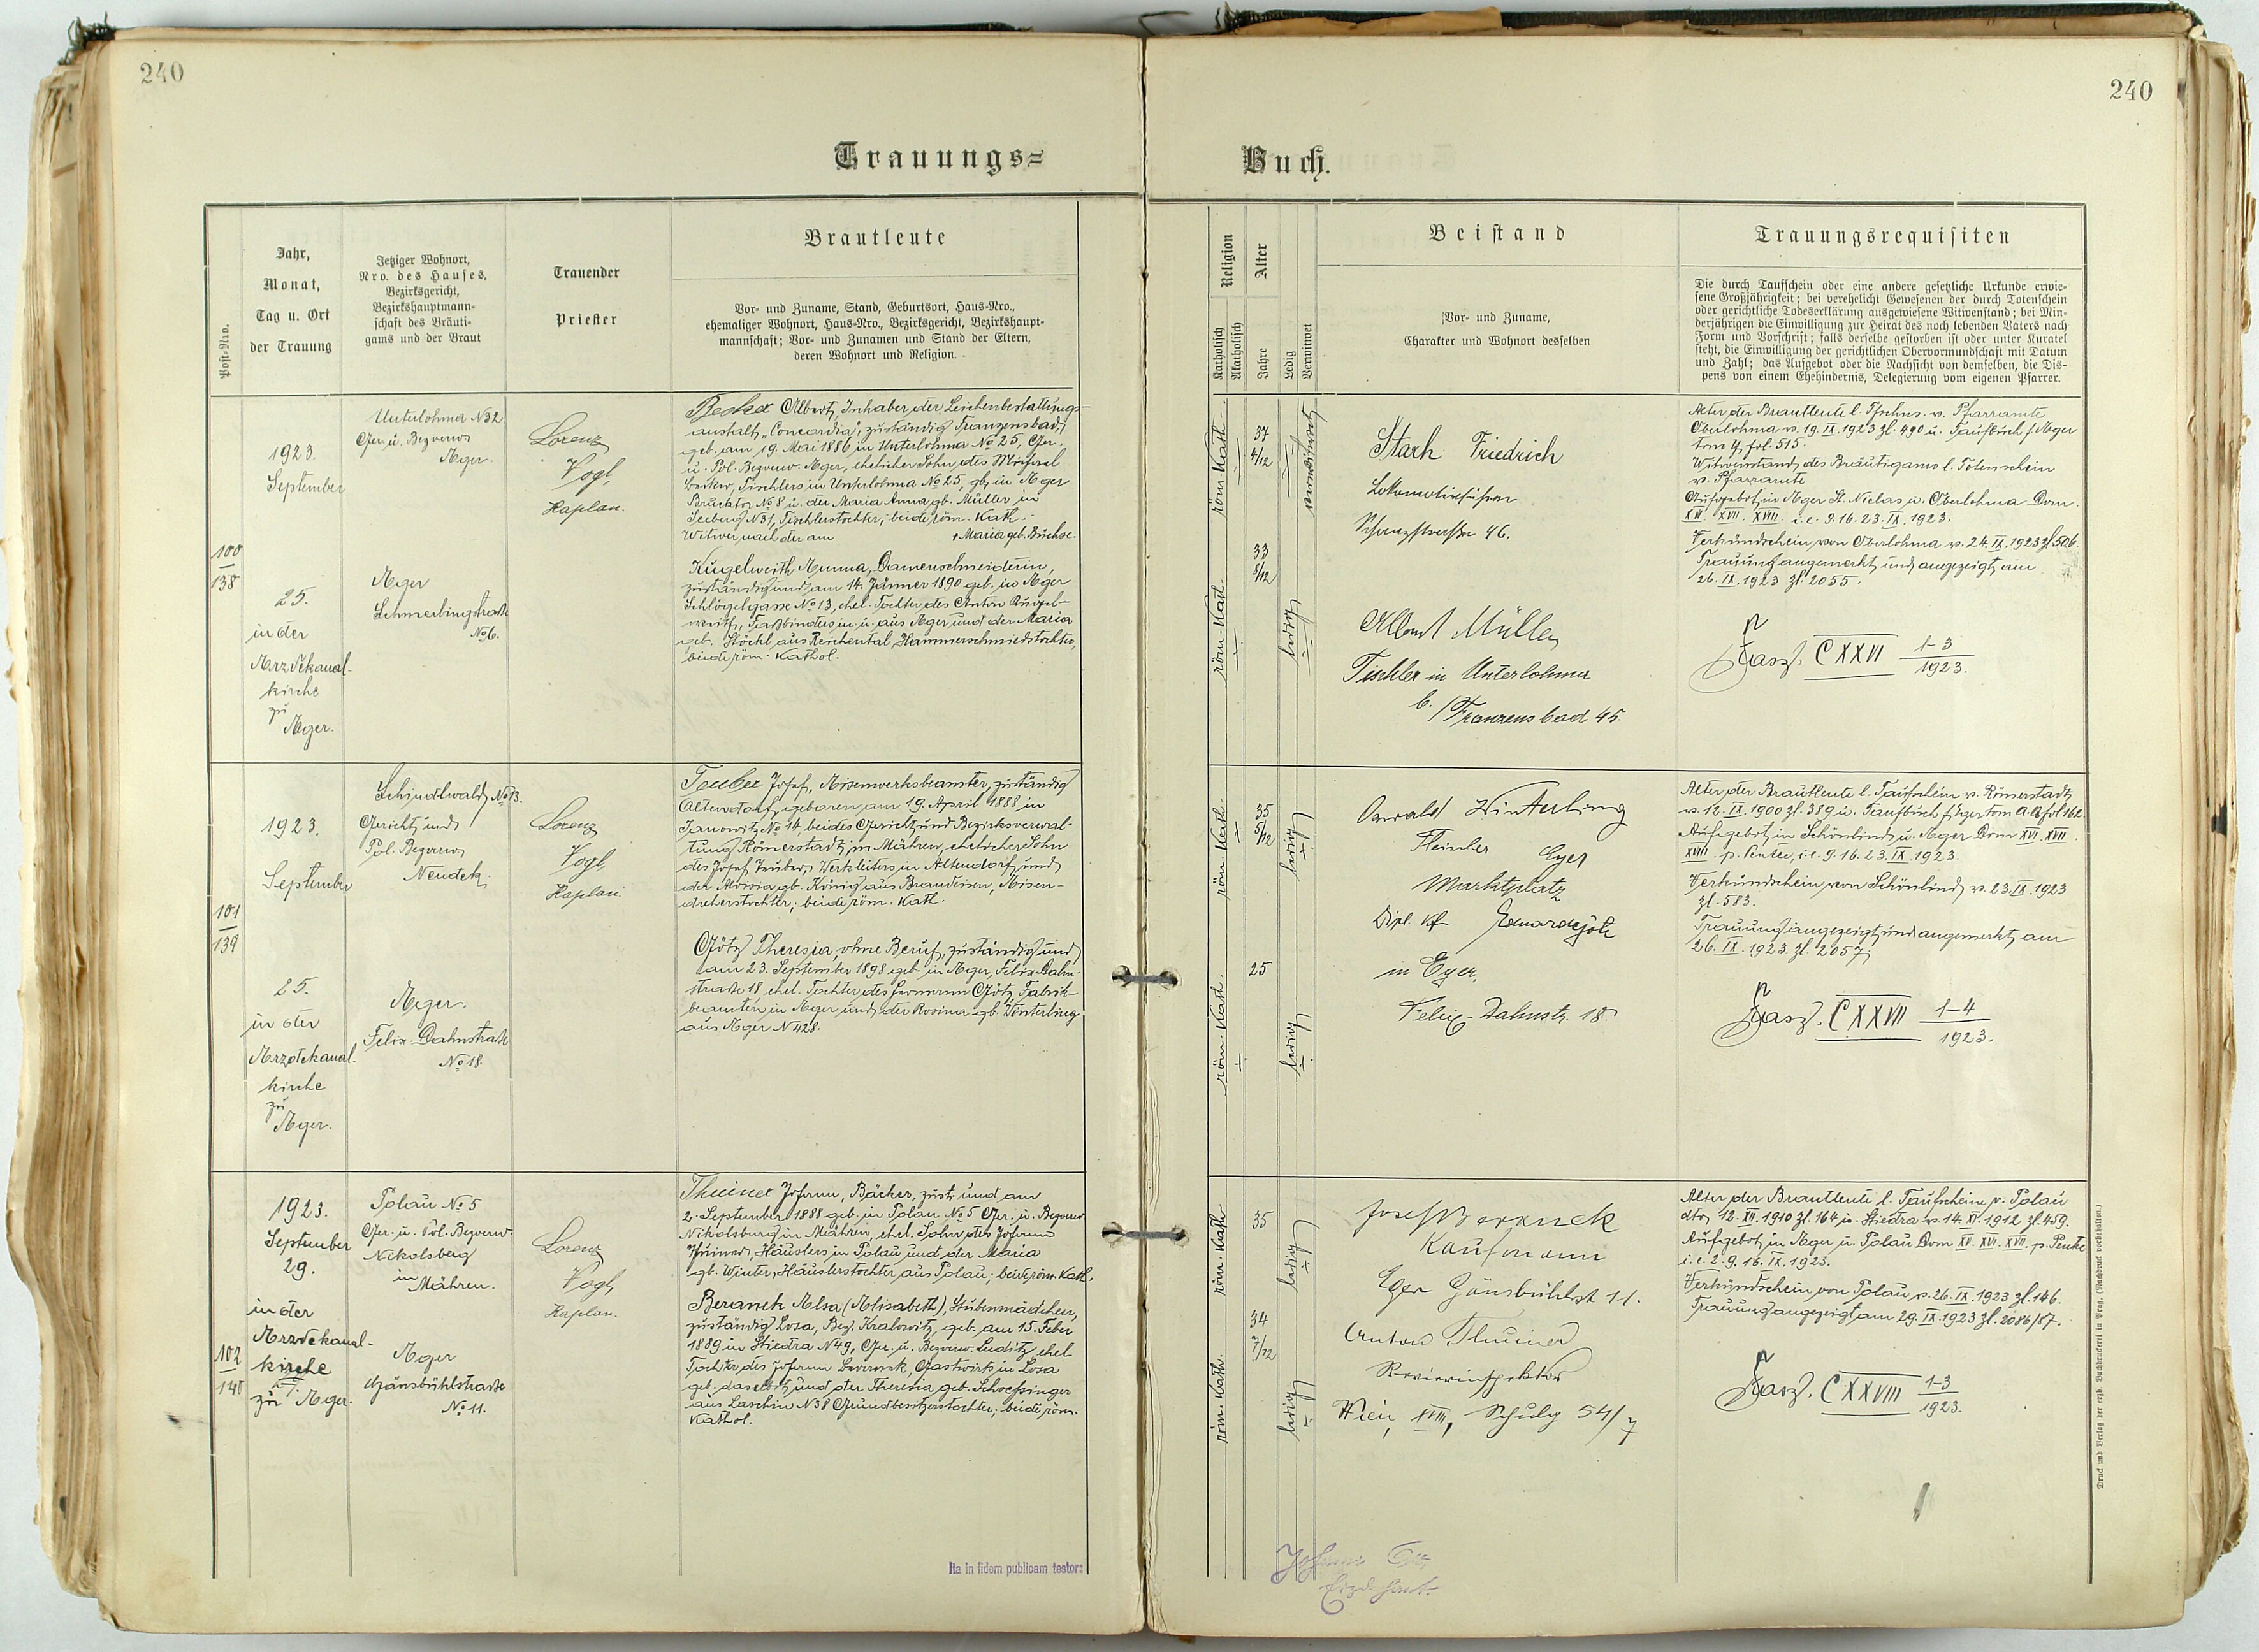 240
240
Trauungs=
Buch.
Post=Nro.
Jahr,
Monat,
Tag u. Ort
der Trauung
Jetziger Wohnort,
Nro. des Hauses,
Bezirksgericht,
Bezirkshauptmann=
schaft des Bräuti=
gams und der Braut
Trauender
Priester
Brautleute
Vor= und Zuname, Stand, Geburtsort, Haus=Nro.,
ehemaliger Wohnort, Haus=Nro., Bezirksgericht, Bezirkshaupt=
mannschaft; Vor= und Zunamen und Stand der Eltern,
deren Wohnort und Religion.
Religion
Katholisch
Akatholisch
Alter
Jahre
Ledig
Verwitwet
Beistand
Vor= und Zuname,
Charakter und Wohnort desselben
Trauungsrequisiten
Die durch Taufschein oder eine andere gesetzliche Urkunde erwie=
sene Großjährigkeit; bei verehelicht Gewesenen der durch Totenschein
oder gerichtliche Todeserklärung ausgewiesene Witwenstand; bei Min=
derjährigen die Einwilligung zur Heirat des noch lebenden Vaters nach
Form und Vorschrift; falls derselbe gestorben ist oder unter Kuratel
steht, die Einwilligung der gerichtlichen Obervormundschaft mit Datum
und Zahl; das Aufgebot oder die Nachsicht von demselben, die Dis=
pens von einem Ehehindernis, Delegierung vom eigenen Pfarrer.
100
138
1923.
September
25.
in der
Erzdekanal-
kirche
zu
Eger.
Unterlohma N32
Ger. u. Bezverw.
Eger.
Eger
Schmerlingstraße
No 6.
Lorenz
Vogl,
Kaplan.
Albert, Inhaber der Leichenbestattungs-
anstalt „Concordia", zuständig Franzensbad,
geb. am 19. Mai 1886 in Unterlohma No 25, Ger.
u. Pol. Bezverw. Eger, ehelicher Sohn des Michael
Tischlers in Unterlohma No 25, gb. in Eger
No 8 u. der Maria Anna gb. Müller in
Seeberg N31, Tischlerstochter; beide röm. Kath.
Witwer nach der am Maria geb. Büchse.
Kugelweith Emma, Damenschneiderin,
zuständig und am 14. Jänner 1890 geb. in Eger
Schlögelgasse No 13, ehel. Tochter des Anton Kugel-
weith, Faßbinders in u. aus Eger und der Maria
geb. Stöckl aus Reichental, Hammerschmiedstochter,
beide röm. Kathol.
röm. Kath.
röm. Kath.
37
4/12
33
8/12
verwitwet
ledig
Stark Friedrich
Lokomotivführer
Schanzstraße 46.
Albert Müller
Tischler in Unterlohma
b. /Franzensbad 45.
Alter der Brautleute l. Tfschns. v. Pfarramte
Oberlohma v. 19. IX. 1923 zl. 490 u. Taufbuch f. Eger
tom 4, fol. 515.
Witwerstand des Bräutigams l. Totenschein
v. Pfarramte
Aufgebot in Eger St. Niclas u. Oberlohma Dom.
XVI. XVII. XVIII. i. e. 9. 16. 23. IX. 1923.
Verkündschein von Oberlohma v. 24. IX. 1923 zl. 506.
Trauung angemerkt und angezeigt am
26. IX. 1923 zl. 2055.
Fasz. CXXVI 1-3
1923.
101
139
1923.
September
25.
in der
Erzdekanal-
kirche
zu
Eger.
Schindlwald No 13.
Gericht und
Pol. Bezverw.
Neudek.
Eger.
Felix-Dahnstraße
No 18.
Lorenz
Vogl,
Kaplan.
Tauber Josef, Eisenwerksbeamter, zuständig
Altendorf, geboren am 19. April 1888 in
Janowitz No 14, beides Gericht und Bezirksverwal-
tung Römerstadt in Mähren, ehelicher Sohn
des Josef Tauber, Werkleiters in Altendorf und
der Aloisia gb. König aus Brandeisen, Eisen-
dreherstochter; beide röm. Kath.
Götz Theresia, ohne Beruf, zuständig und
am 23. September 1898 geb. in Eger, Felix-Dahn-
straße 18, ehel. Tochter des Hermann Götz, Fabrik-
beamten in Eger und der Rosina gb. Winterling
aus Eger N 428.
röm. Kath.
röm. Kath.
35
5/12
25
ledig
ledig
Oswald Winterling
Fleischer Eger
Marktplatz
Dipl. Kf Eduard Götz
in Eger,
Felix-Dahnstr. 18.
Alter der Brautleute l. Taufschein v. Römerstadt
v. 12. IX. 1900 zl. 389 u. Taufbuch f. Eger tom fol 162.
Aufgebot in Schönlind u. Eger Dom XVI. XVII.
XVIII. p. Pentec, i. e. 9. 16. 23. IX. 1923.
Verkündschein von Schönlind v. 23. IX. 1923
zl. 583.
Trauung angezeigt und angemerkt am
26. IX. 1923. zl. 2057.
Fasz. CXXVII 1-4
1923.
102
140
1923.
September
29.
in der
Erzdekanal-
kirche
zu Eger.
Polau No 5
Ger. u. Pol. Bezverw.
Nikolsburg
in
Mähren.
Eger
Gänsbühlstraße
No 11.
Lorenz
Vogl,
Kaplan.
Thuiner Johann, Bäcker, zust. und am
2. September 1888 geb. in Polau No 5 Ger. u. Bezverw
Nikolsburg in Mähren, ehel. Sohn des Johann
Thuiner, Häuslers in Polau und der Maria
gb. Winter, Häuslerstochter aus Polau; beide röm. Kath.
Beranek Elsa (Elisabeth), Stubenmädchen,
zuständig Losa, Bez. Kralowitz, geb. am 15. Feber
1889 in Stiedra N49, Ger. u. Bezverw. Luditz, ehel
Tochter des Johann Beranek, Gastwirts in Losa
geb. daselbst und der Theresia geb. Schoessinger
aus Laschin N38 Grundbesitzerstochter; beide röm.
Kathol.
röm. Kath
röm. Kath.
35
34
7/12
ledig
ledig
Josef Beranek
Kaufmann
Eger Gänsbühlst 11.
Anton Thuiner
Revierinspektor
Wien, XVIII, Schulg 54/7
Alter der Brautleute l. Taufscheine v. Polau
dto 12. XII. 1910 zl. 164 u. Stiedra v. 14. XI. 1912 zl. 459.
Aufgebot in Eger u. Polau Dom XV. XVI. XVII. p. Pentec
i. e. 2. 9. 16. IX. 1923.
Verkündschein von Polau v. 26. IX. 1923 zl. 146.
Trauung angezeigt am 29. IX. 1923 zl. 2086/87.
Fasz. CXXVIII 1-3
1923.
Ita in fidem publicam testor:
Johann
Druck und Verlag der erzb. Buchdruckerei in Prag. (Nachdruck vorbehalten.)